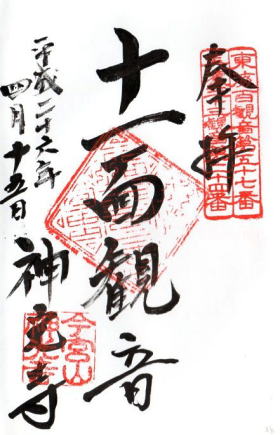 東海百観音第五十七番
奉拝
十一面観音
平成二十六年
四月十五日
今宮山
神光寺